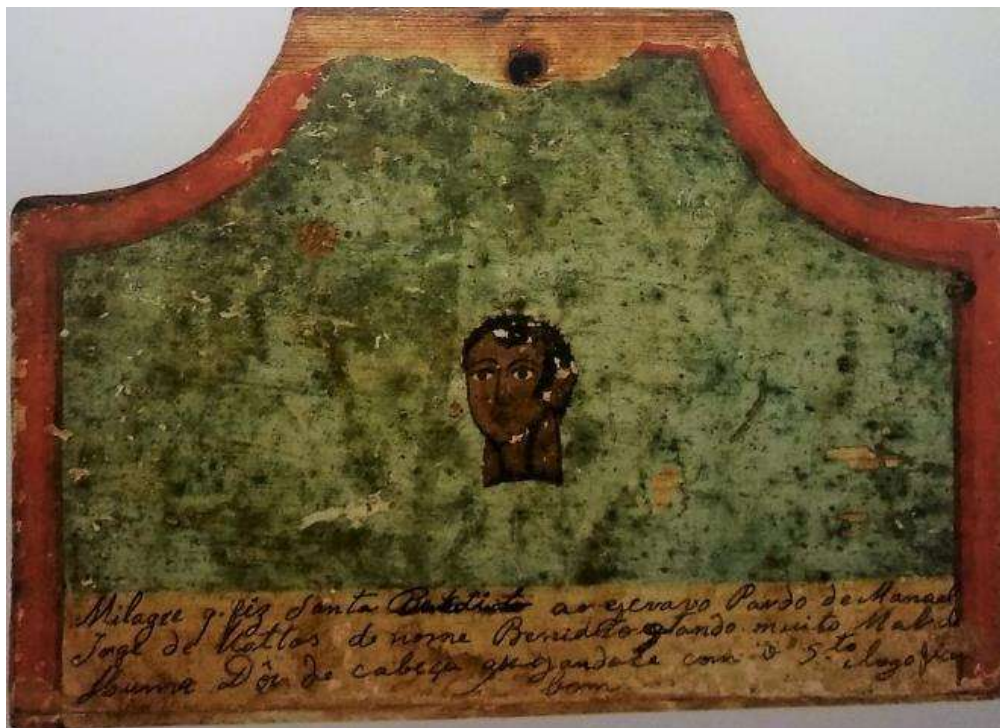 Milagre q. fez Santa ao escravo Pardo de Manoel
Jose de Mattos de nome Benidito estando muito Mal de
huma Dôr de cabeça com o S.to logo ficou
bom